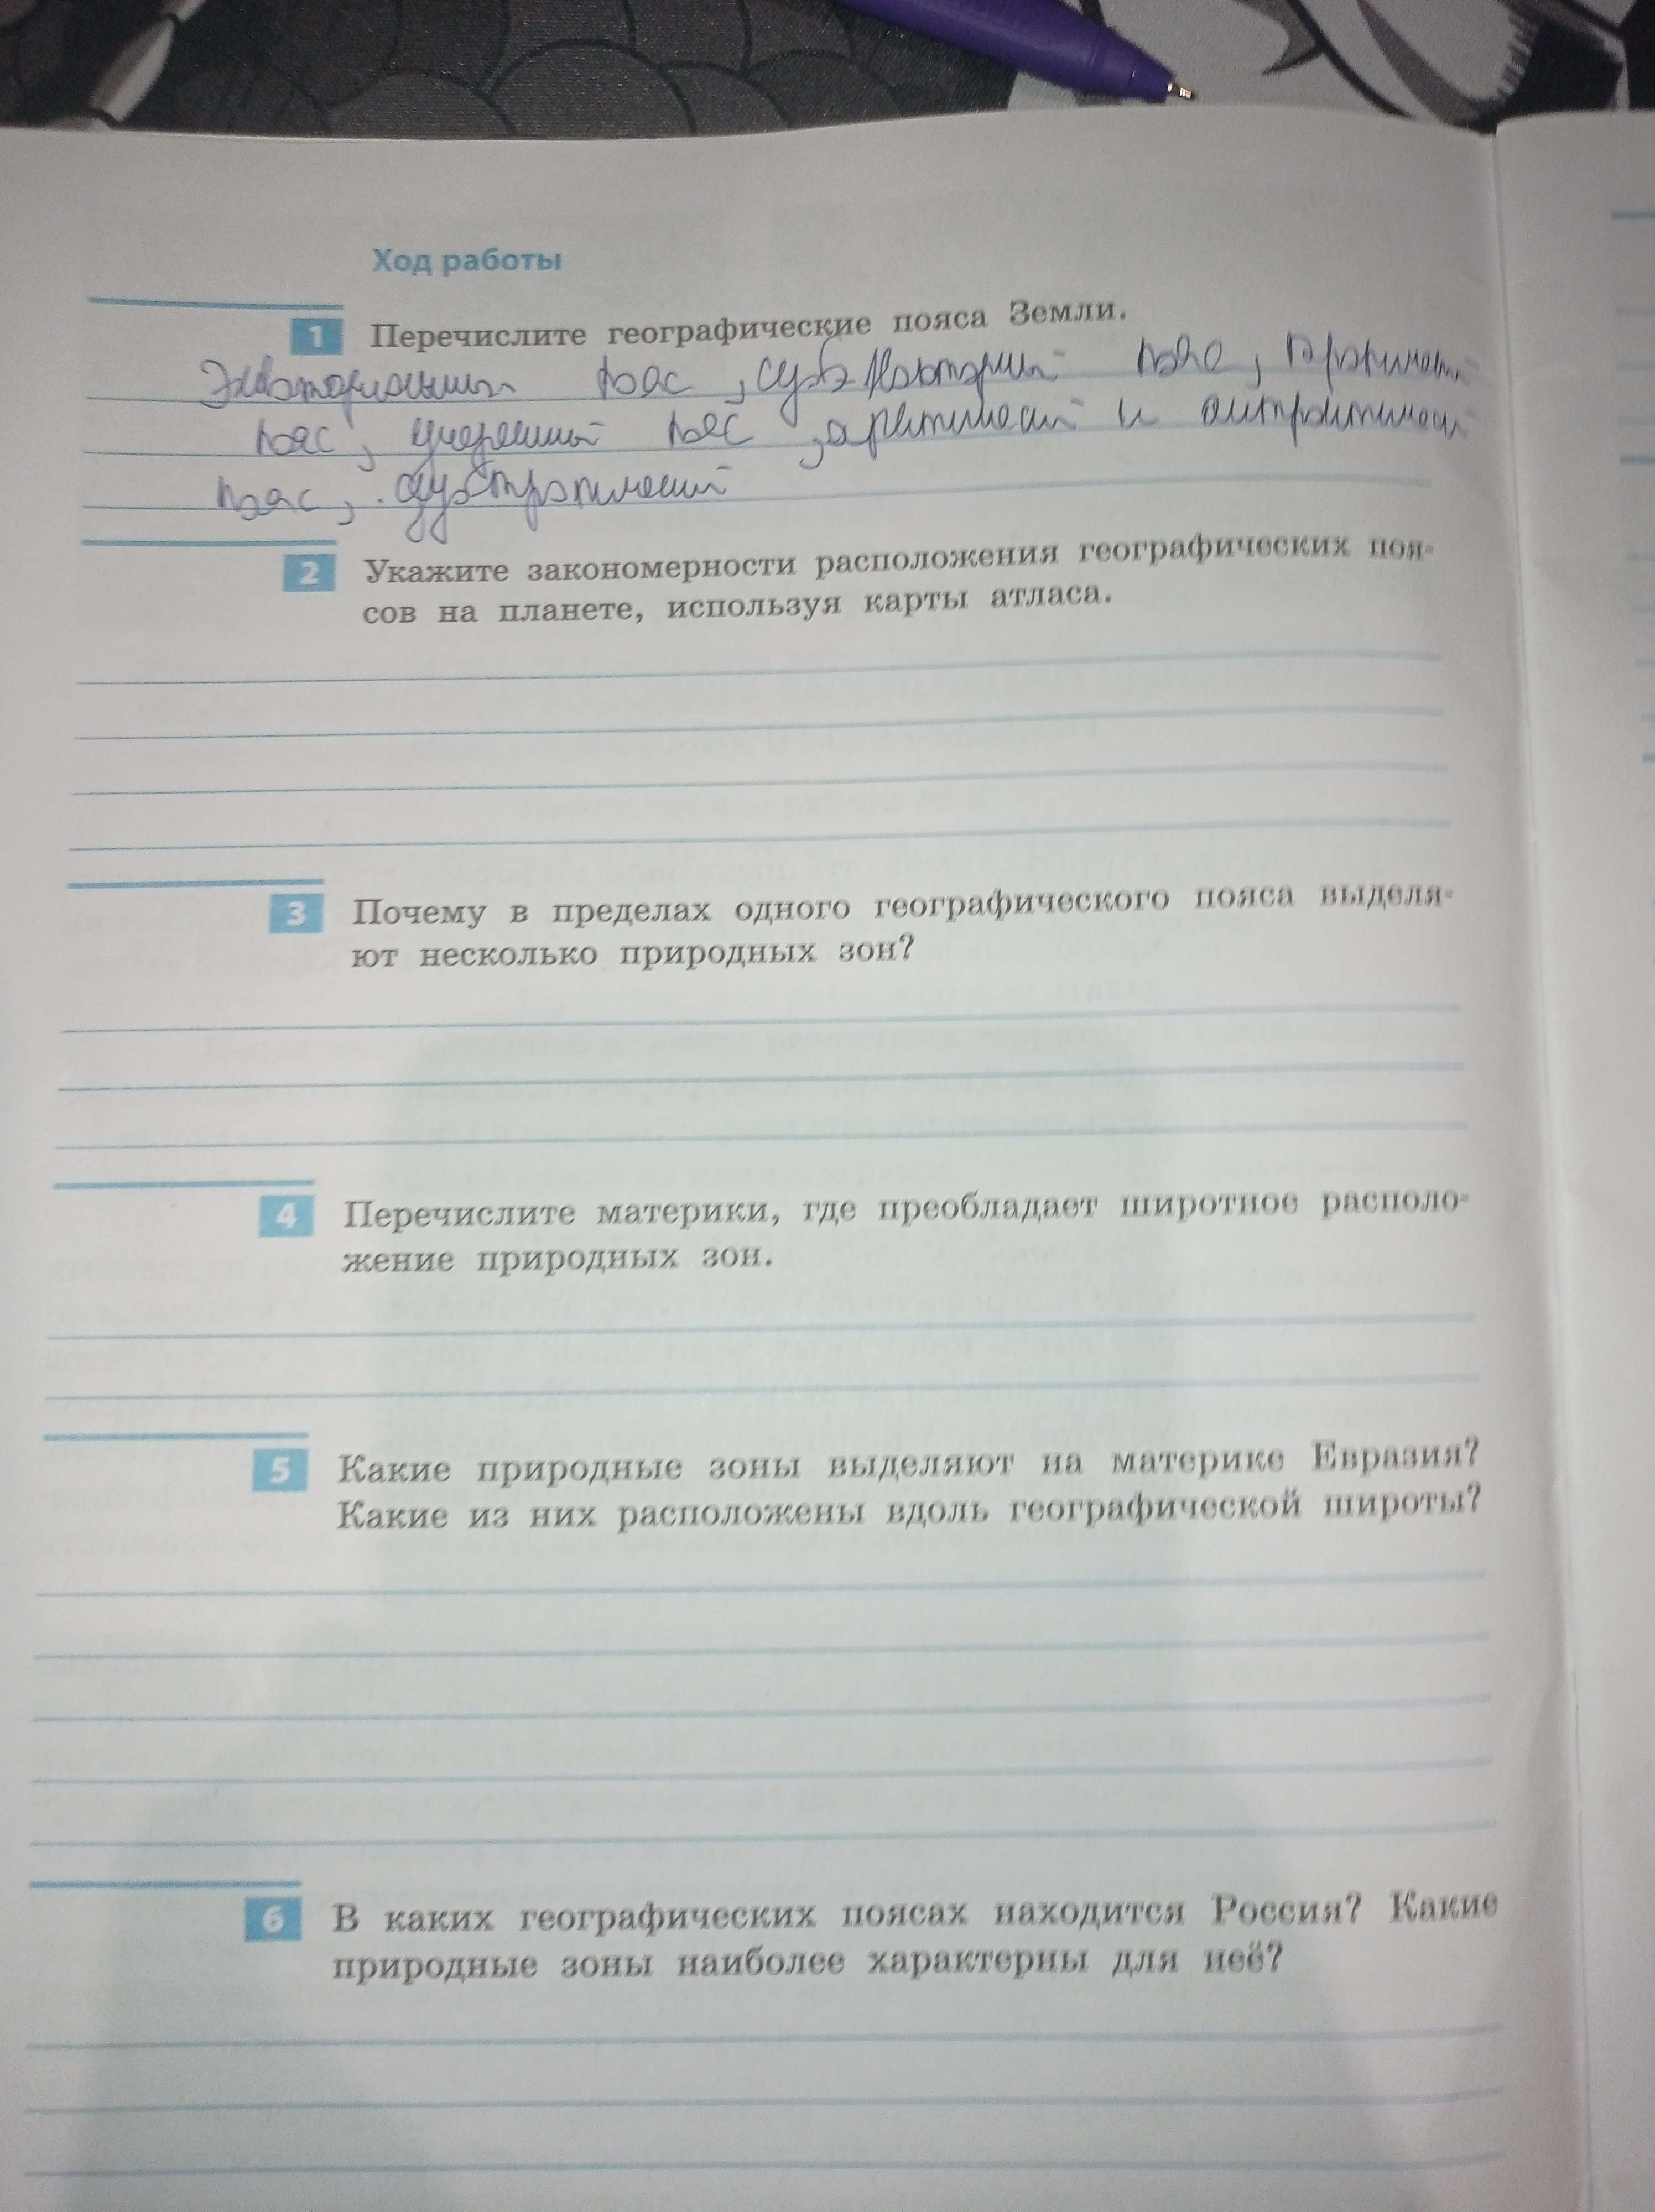 Ход работы
1 Перечислите географические пояса Земли.
Экваториальный пояс, субэкваторий пояс, тропический
пояс, умеренный пояс, арктический и антрактический
пояс, субтропический
2 Укажите закономерности расположения географических поя-
сов на планете, используя карты атласа.
3 Почему в пределах одного географического пояса выделя-
ют несколько природных зон?
4 Перечислите материки, где преобладает широтное располо-
жение природных зон.
5 Какие природные зоны выделяют на материке Евразия?
Какие из них расположены вдоль географической широты?
6 В каких географических поясах находится Россия? Какие
природные зоны наиболее характерны для неё?